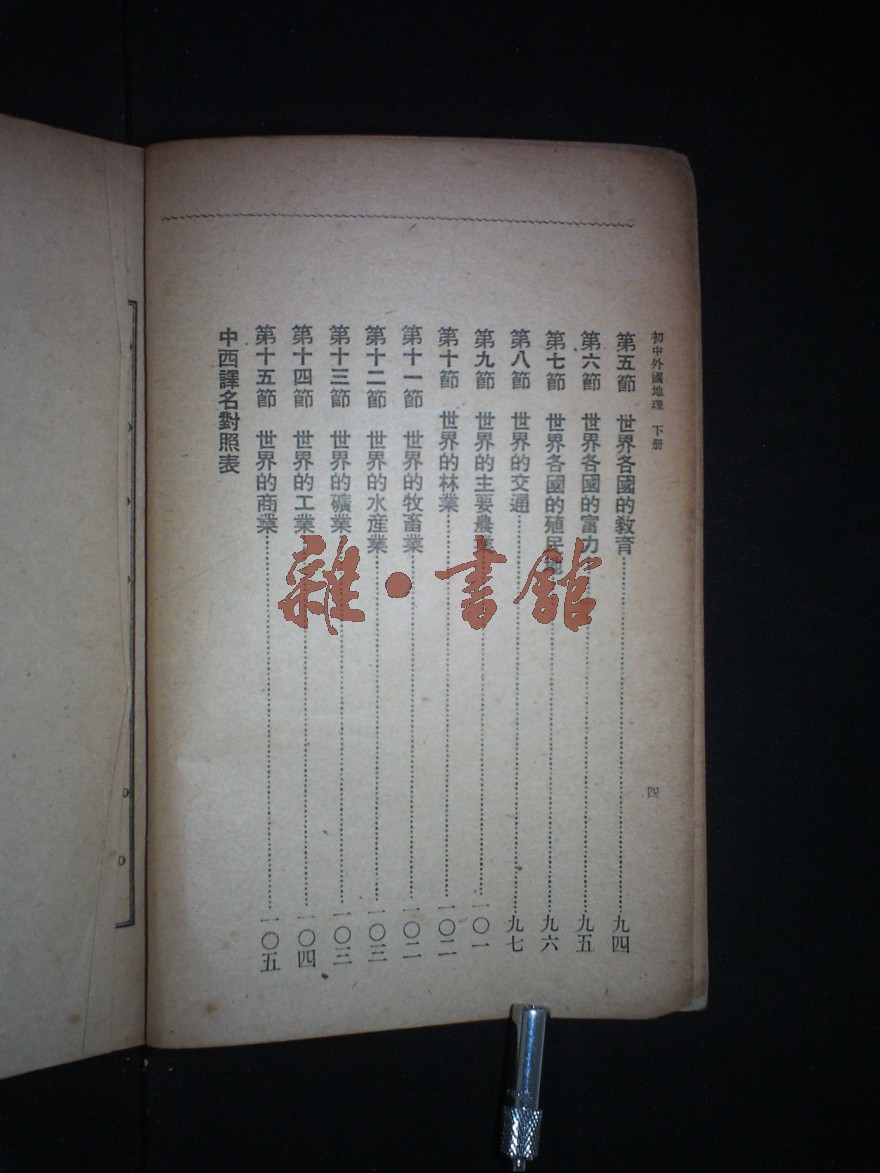 初中外國地理 下册
四
第五節 世界各國的教育 九四
第六節 世界各國的富力 九五
第七節 世界各國的殖民地 九六
第八節 世界的交通 九七
第九節 世界的主要農業 一〇一
第十節 世界的林業 一〇二
第十一節 世界的牧畜業 一〇二
第十二節 世界的水産業 一〇三
第十三節 世界的礦業 一〇三
第十四節 世界的工業 一〇四
第十五節 世界的商業 一〇五
中西譯名對照表
雜·書館